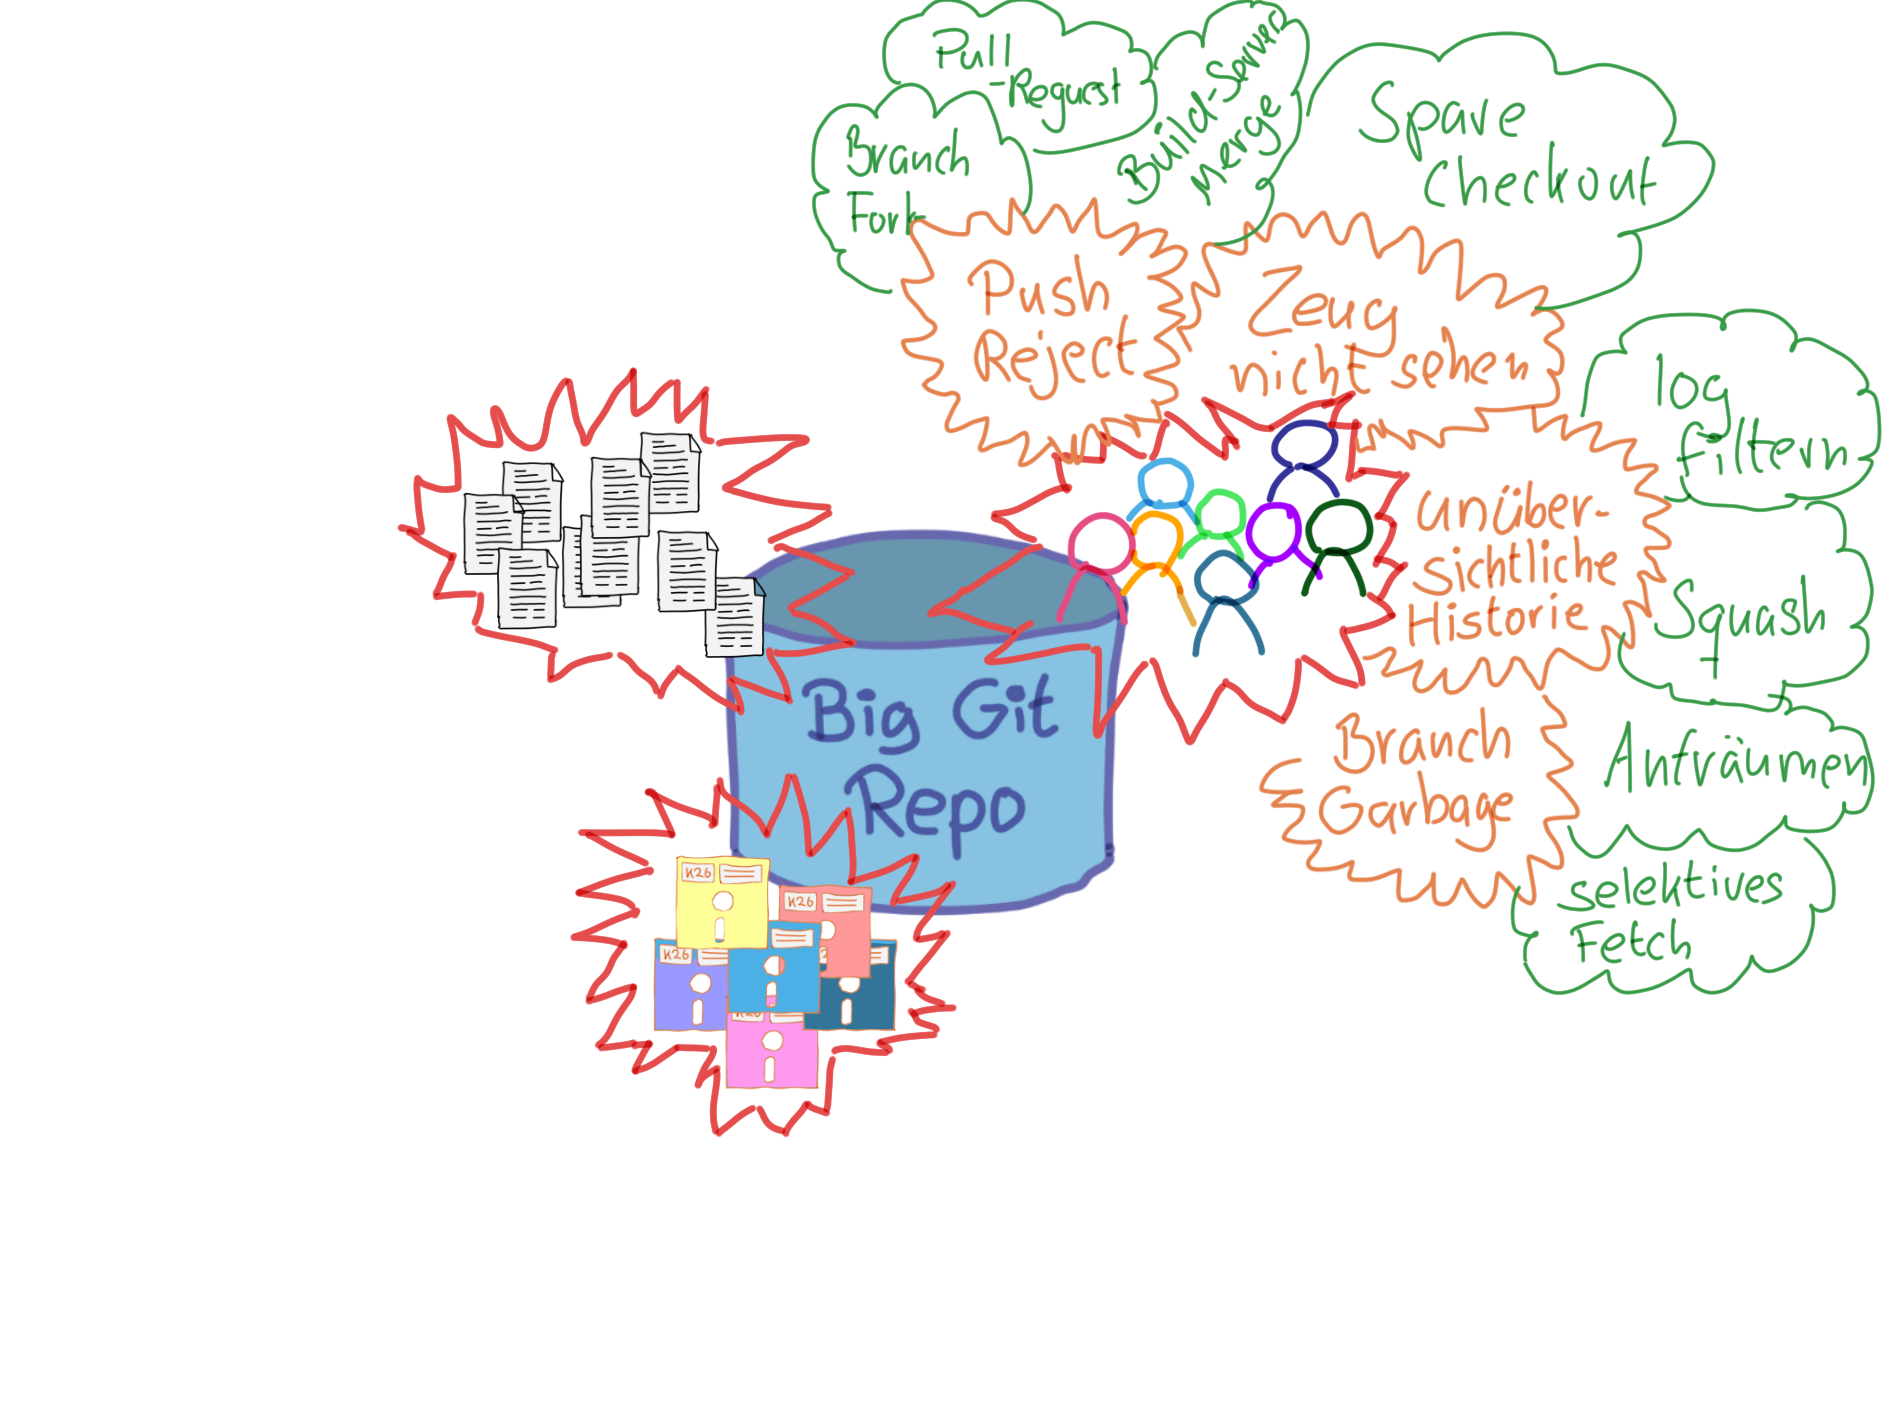 Pull
-Request
Branch
Fork
Build-Server
Merge
Spare
Checkout
Push
Reject
Zeug
nicht sehen
log
filtern
unüber-
sichtliche
Historie
Squash
Branch
Garbage
Aufräumen
selektives
Fetch
Big Git
Repo
K26
K26
K26
K26